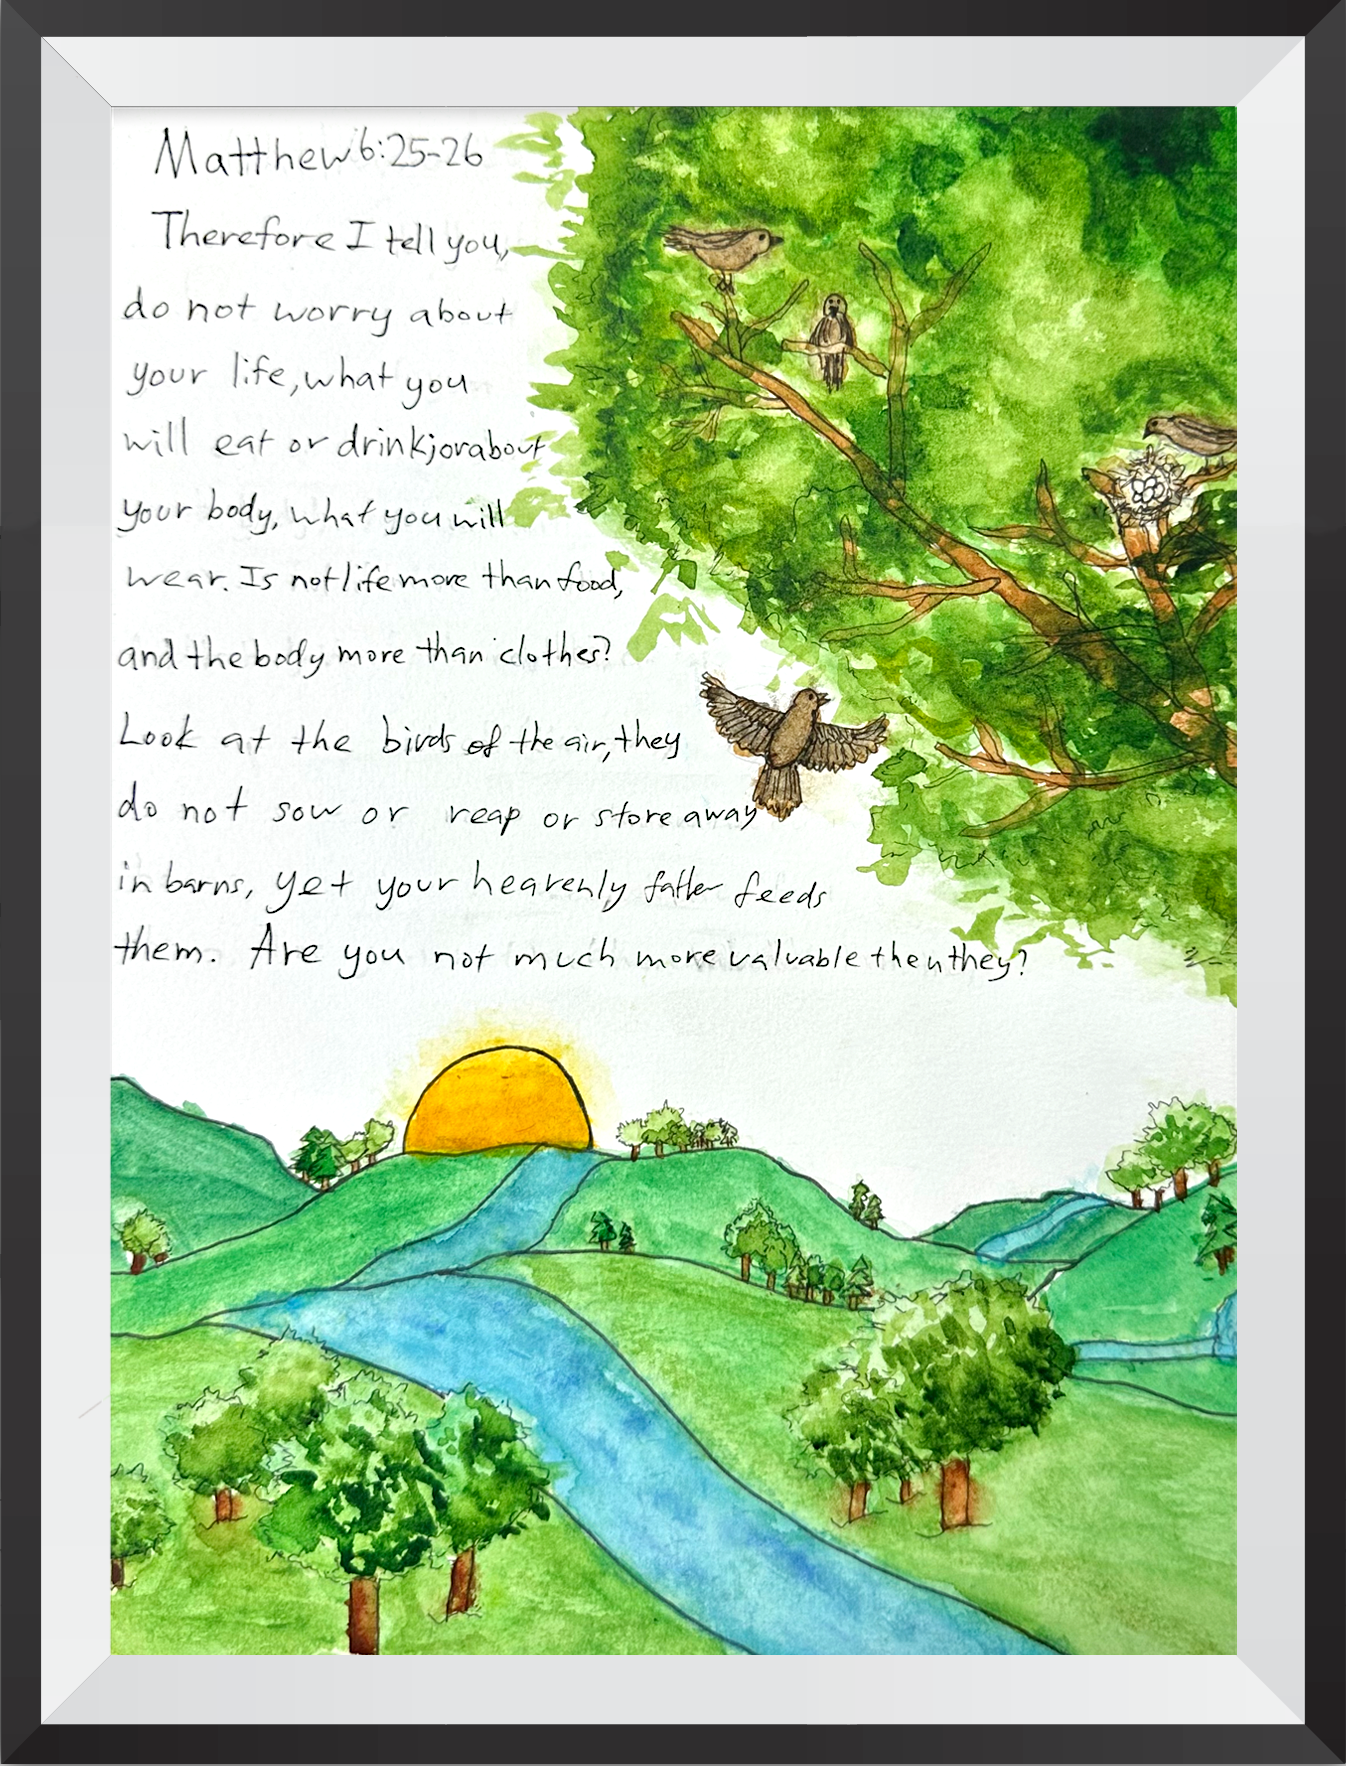 Matthew 6:25-26
Therefore I tell you,
do not worry about
your life, what you
will eat or drink; or about
your body, what you will
wear. Is not life more than food,
and the body more than clothes?
Look at the birds of the air, they
do not sow or reap or store away
in barns, yet your heavenly father feeds
them. Are you not much more valuable then they?